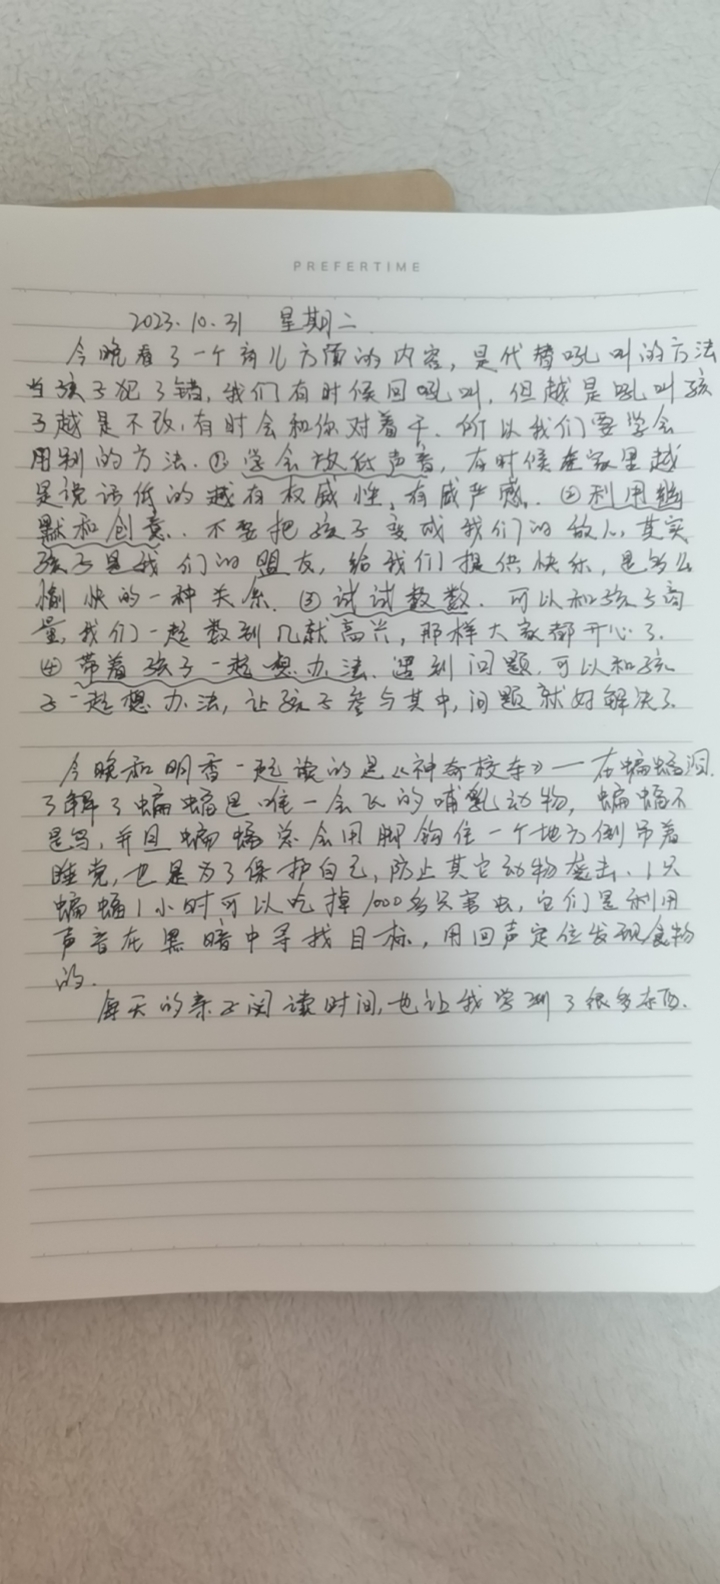 PREFERTIME
2023.10.31 星期二
今晚看了一个育儿方面的内容，是代替吼叫的方法
当孩子犯了错，我们有时候回吼叫，但越是吼叫孩
子越是不改，有时会和你对着干．所以我们要学会
用别的方法．①学会放低声音，有时候在家里越
是说话低的越有权威性，有威严感．②利用幽
默和创意．不要把孩子变成我们的敌人，其实
孩子是我们的盟友，给我们提供快乐，是多么
愉快的一种关系．③试试数数．可以和孩子商
量，我们一起数到几就高兴，那样大家都开心了．
④带着孩子一起想办法．遇到问题，可以和孩
子一起想办法，让孩子参与其中，问题就好解决了．
今晚和明香一起读的是《神奇校车》一在蝙蝠洞．
了解了蝙蝠是唯一会飞的哺乳动物，蝙蝠不
是鸟，并且蝙蝠总会用脚钩住一个地方倒吊着
睡觉，也是为了保护自己，防止其它动物袭击．1只
蝙蝠1小时可以吃掉1000多只害虫，它们是利用
声音在黑暗中寻找目标，用回声定位发现食物
的．
每天的亲子阅读时间，也让我学到了很多东西．